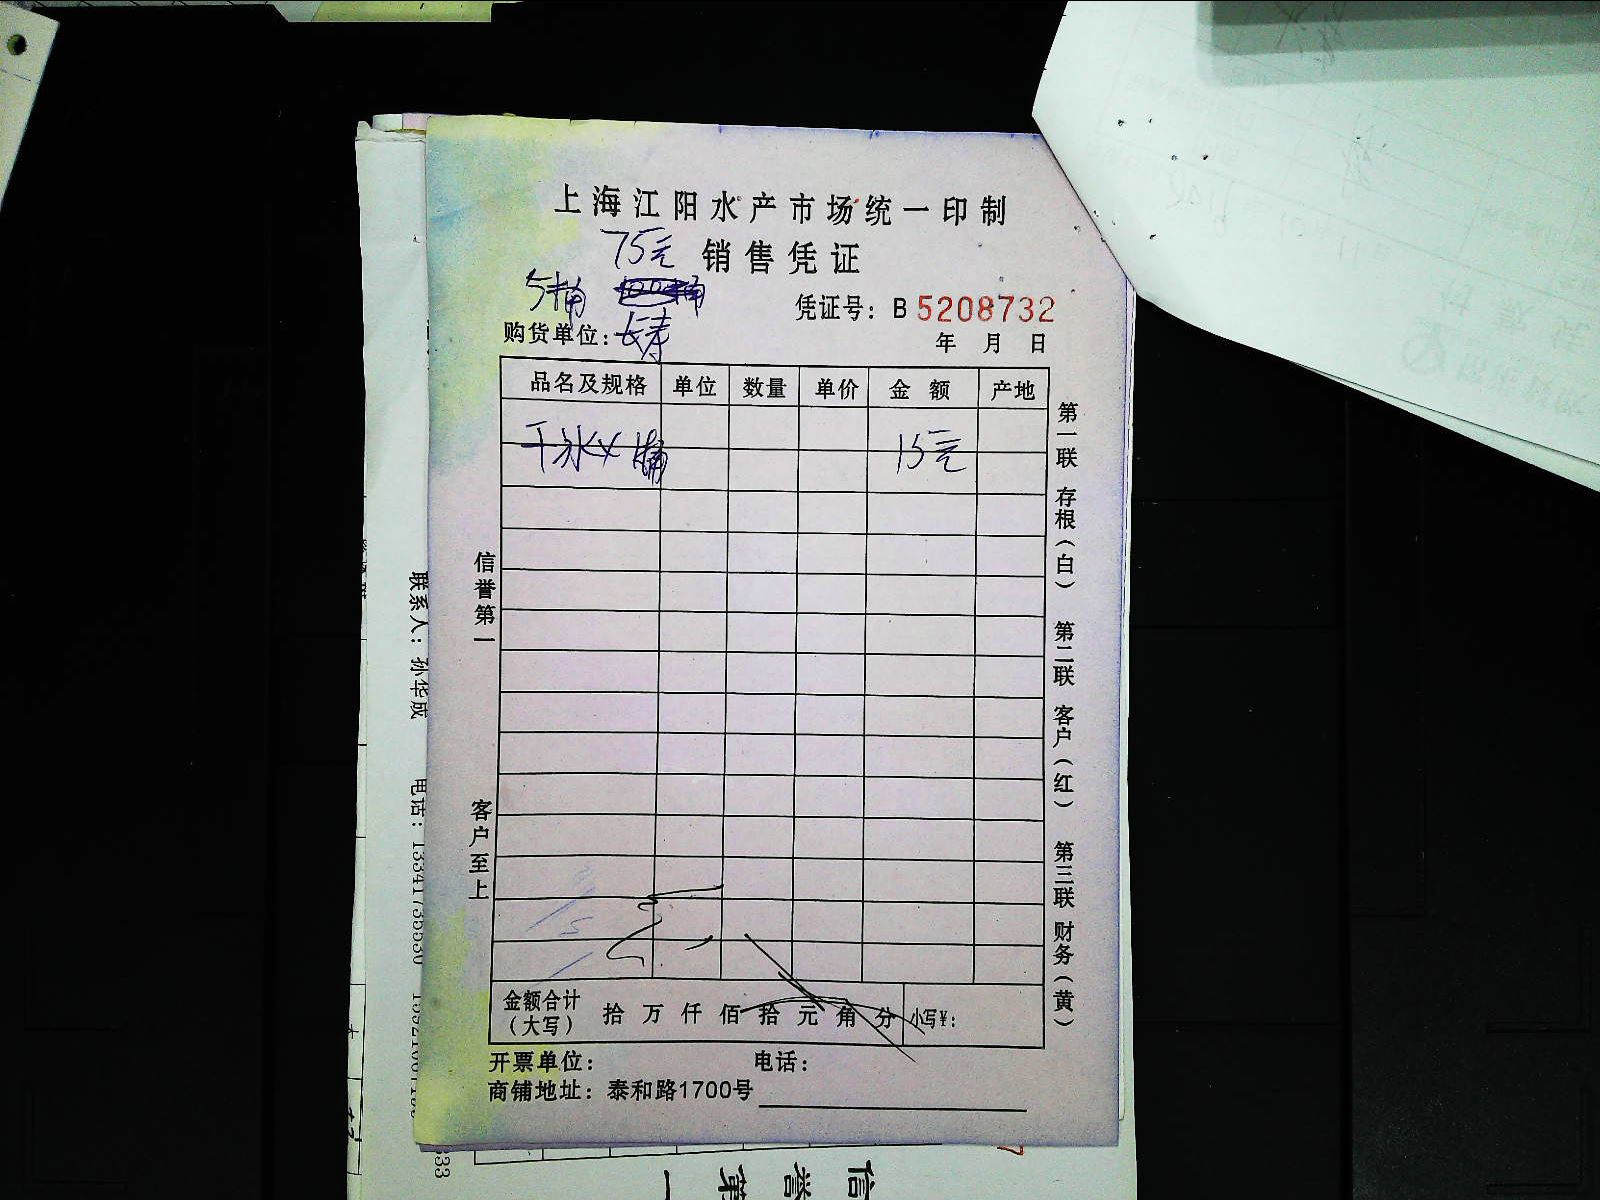 上海江阳水产市场统一印制
75元 销售凭证
5桶
凭证号：B 5208732
购货单位：长寿
年 月 日
品名及规格 单位 数量 单价 金额 产地
干冰X 桶 15元
第一联 存根（白） 第二联 客户（红） 第三联 财务（黄）
信誉第一
客户至上
金额合计（大写） 拾万仟佰拾元角分 小写¥：
开票单位： 电话：
商铺地址：泰和路1700号
联系人：孙华成 电话：13341735530
333
信誉第一